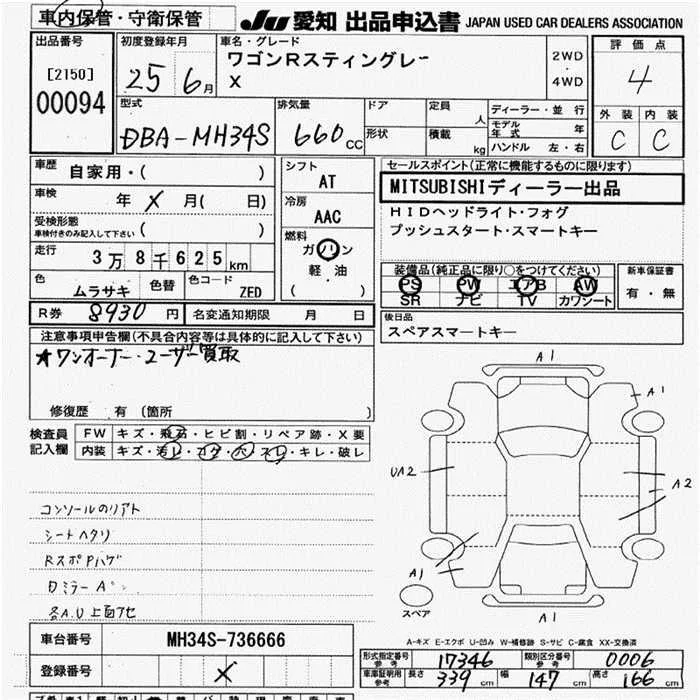 車内保管・守衛保管 JU 愛知 出品申込書 JAPAN USED CAR DEALERS ASSOCIATION
出品番号 初度登録年月 車名・グレード 評価点
[2150] 25 6月 ワゴンRスティングレー 2WD・4WD 4
00094 X
外装 内装
C C
型式 排気量 ドア 定員 人 ディーラー・並行
DBA-MH34S 660cc 形状 積載 kg モデル年式 年
ハンドル 左・右
車歴 自家用・( ) シフト AT セールスポイント(正常に機能するものに限ります)
車検 年 X 月( 日) 冷房 AAC MITSUBISHIディーラー出品
受検形態 車検付きのみ記入して下さい ( ) HIDヘッドライト・フォグ
走行 3万8千625km 燃料 ガソリン・軽油 ( ) プッシュスタート・スマートキー
色 ムラサキ 色替 色コード ZED 装備品(純正品に限り○をつけてください) 新車保証書
PS PW エアB AW 有・無
SR ナビ TV カワシート
R券 8930円 名変通知期限 月 日 後日品
スペアスマートキー
注意事項申告欄(不具合内容等は具体的に記入して下さい)
★ワンオーナー・ユーザー買取
修復歴 有 (箇所 )
検査員記入欄 FW キズ・飛石・ヒビ割・リペア跡・X要
内装 キズ・汚レ・コゲ・穴・スレ・キレ・破レ
コンソールのリアト
シートヘタリ
RスポPハゲ
A1
A1
UA2
A2
A1
A1
スペア
A-キズ E-エクボ U-凹み W-補修跡 S-サビ C-腐食 XX-交換済
車台番号 MH34S-736666
登録番号 X
形式指定番号 参考 17346 類別区分番号 参考 0006
車庫証明用 参考 長さ 339cm 幅 147cm 高さ 166cm